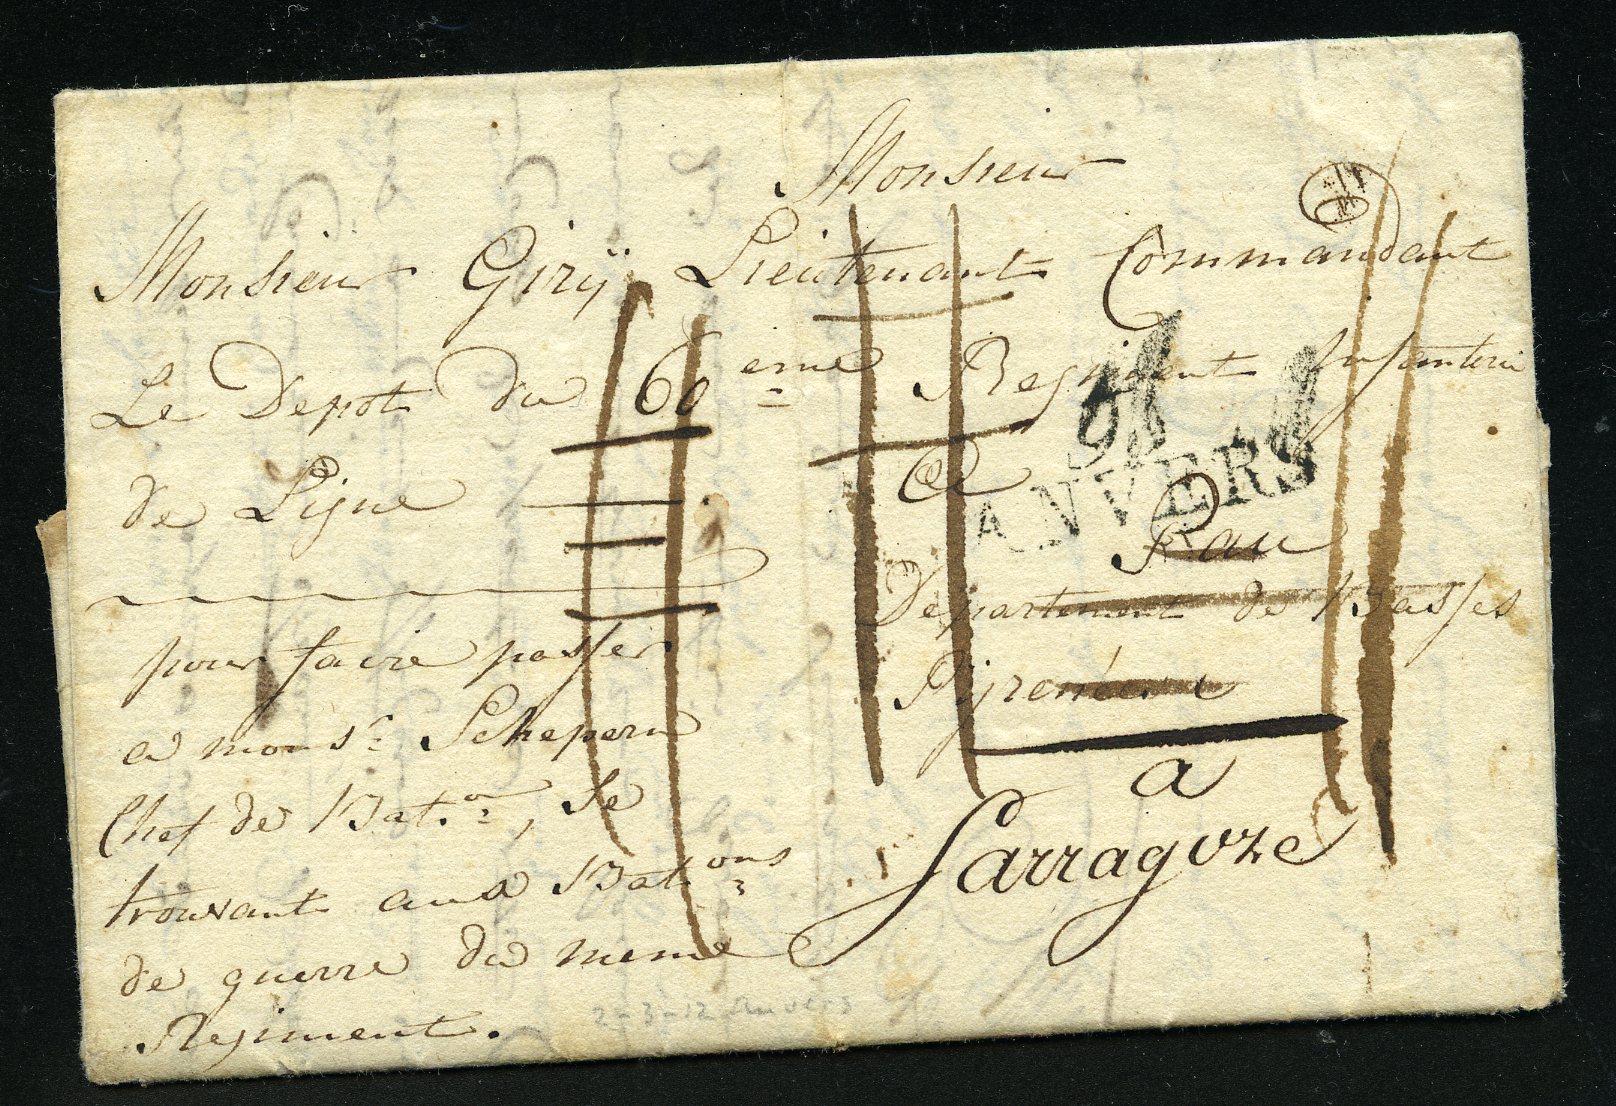 Monsieur
Monsieur Girÿ Lieutenant Commandant
Le Depot du 60eme Regiment Infanterie
de Ligne
a
Pau
Departement de Basses
Pÿrenées
a
Sarragoze
pour faire passer
a monsr. Schepern
Chef de Bat.on, se
trouvant aux Bat.ons
de guerre du meme
Regiment.
91
ANVERS
2-3-12 Anvers